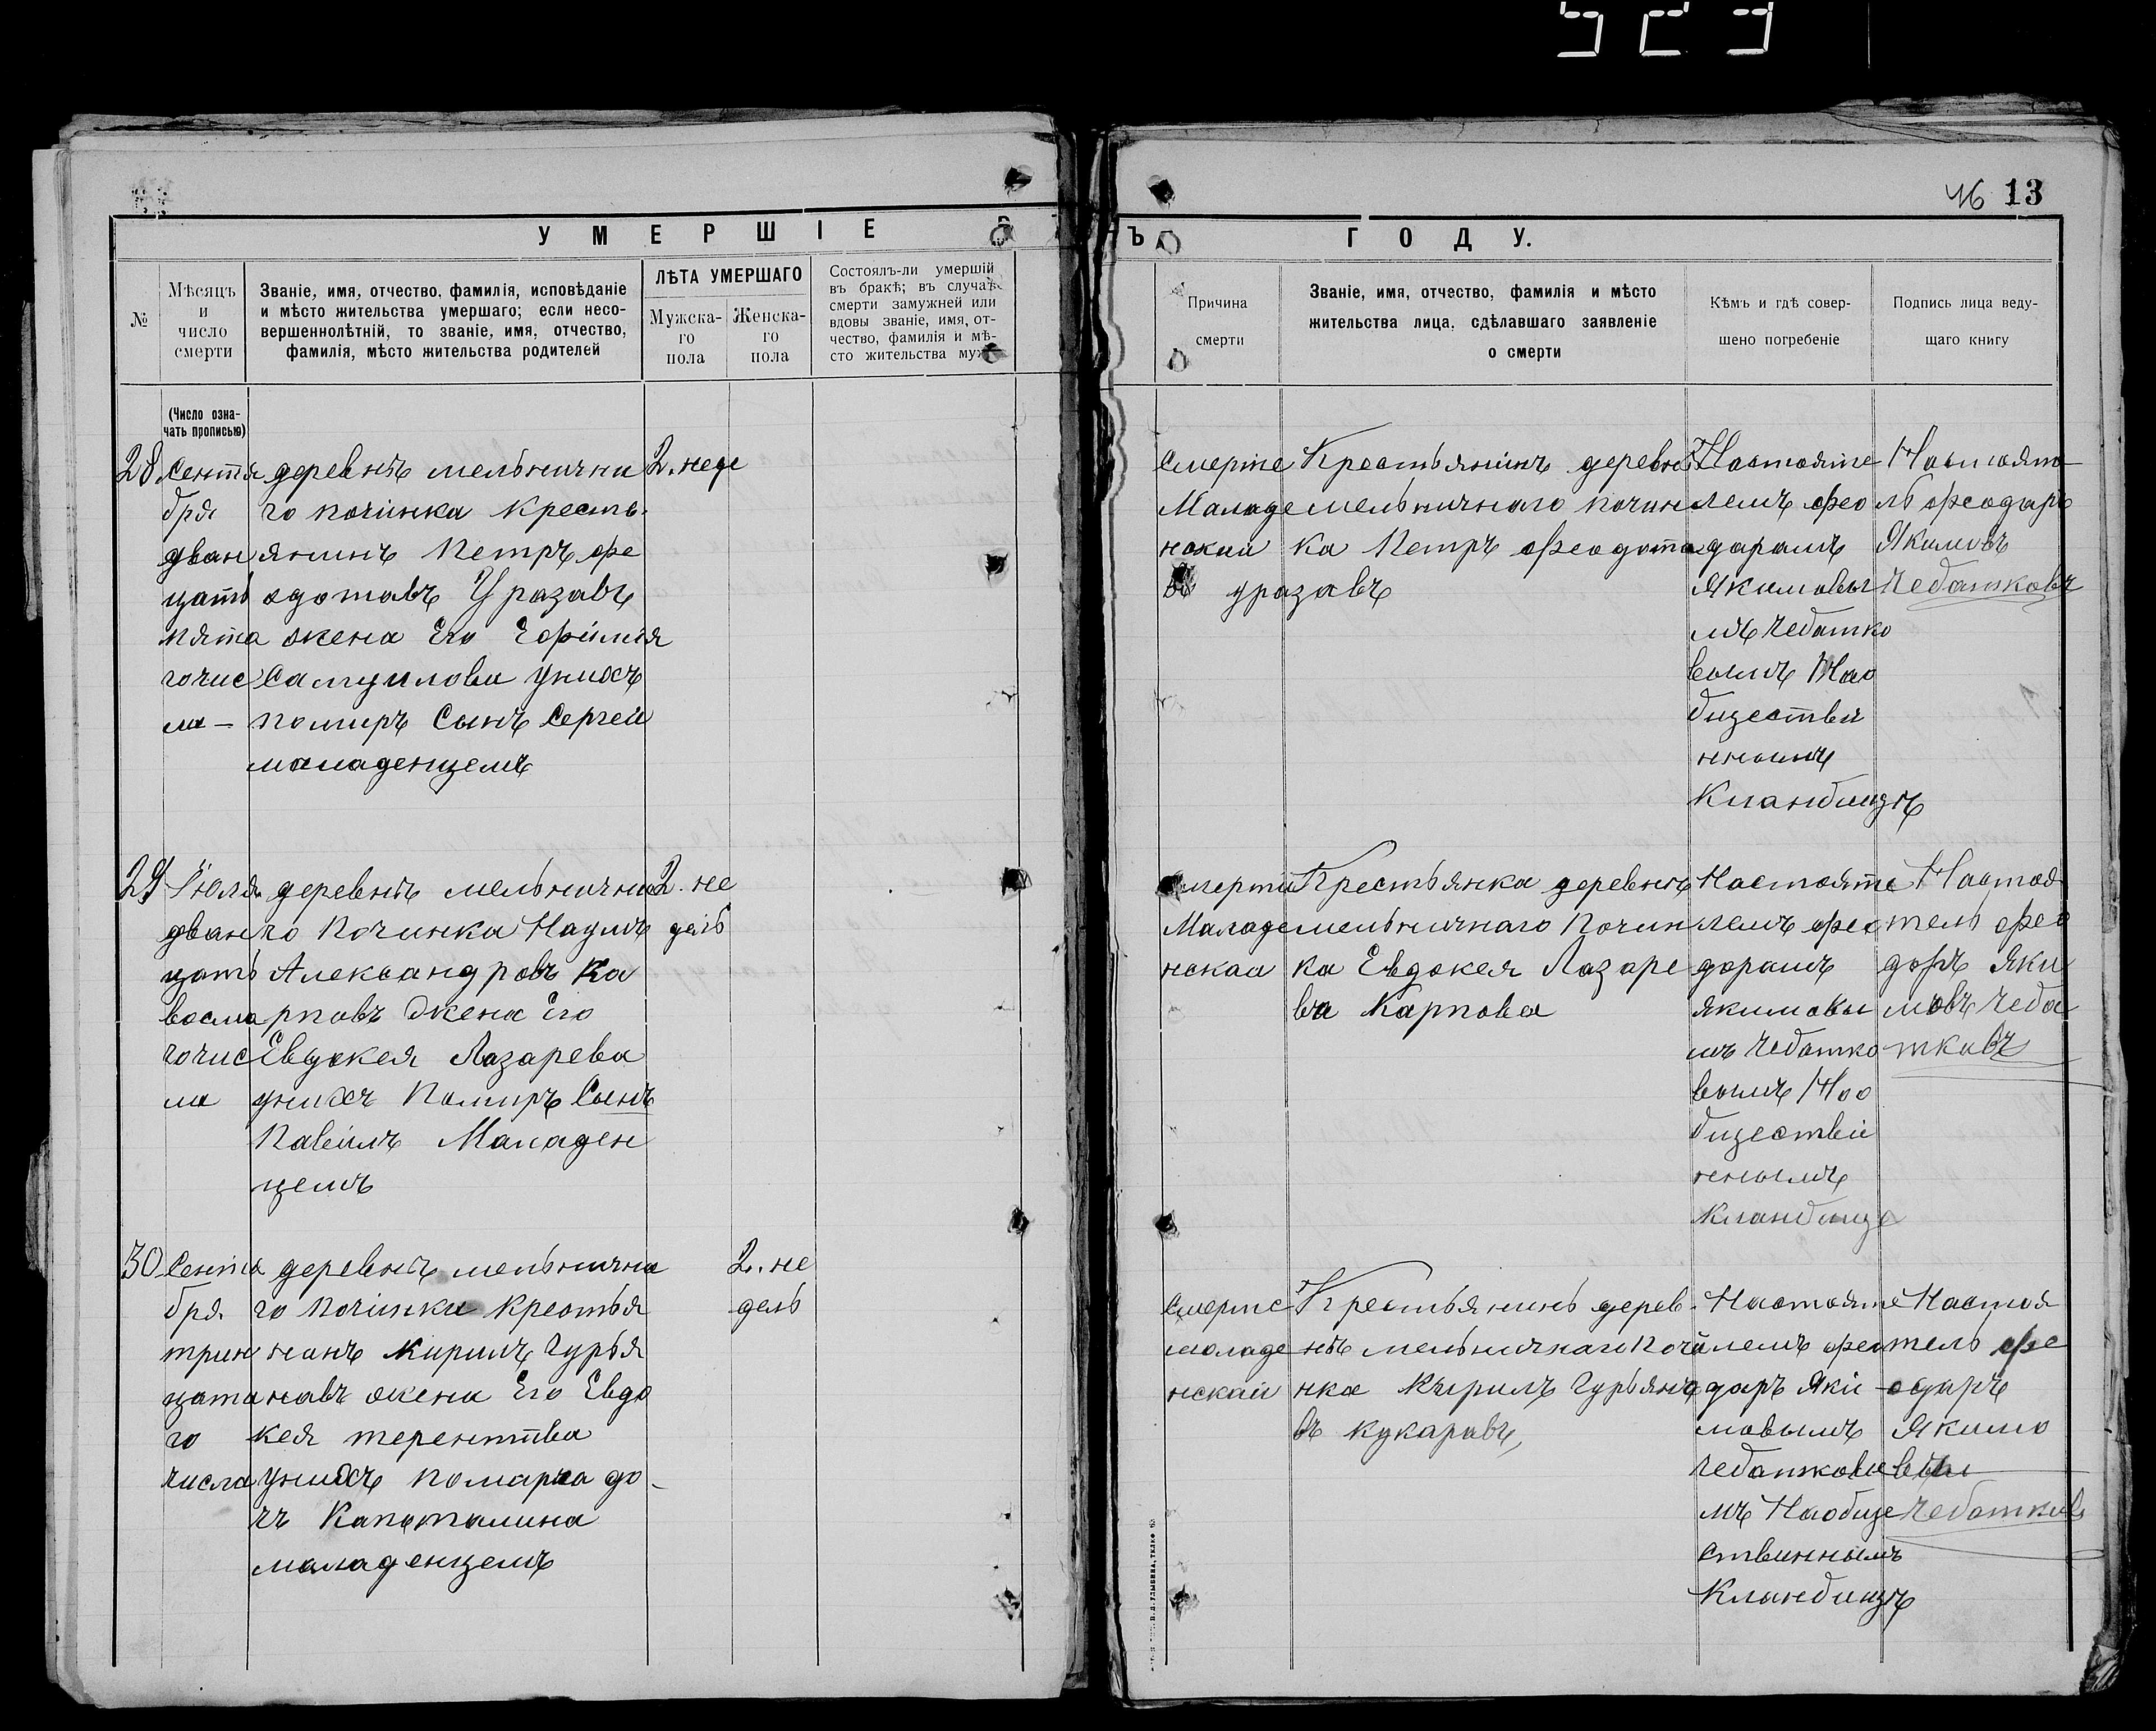 523
46 13
УМЕРШІЕ В
Ъ ГОДУ.
№
Мѣсяцъ
и
число
смерти
Званіе, имя, отчество, фамилія, исповѣданіе
и мѣсто жительства умершаго; если несо-
вершеннолѣтній, то званіе, имя, отчество,
фамилія, мѣсто жительства родителей
ЛѢТА УМЕРШАГО
Мужска-
го
пола
Женска-
го
пола
Состоялъ-ли умершій
въ бракѣ; въ случаѣ
смерти замужней или
вдовы званіе, имя, от-
чество, фамилія и мѣ-
сто жительства муж
Причина
смерти
Званіе, имя, отчество, фамилія и мѣсто
жительства лица, сдѣлавшаго заявленіе
о смерти
Кѣмъ и гдѣ совер-
шено погребеніе
Подпись лица веду-
щаго книгу
(Число озна-
чать прописью)
28
Сентя
бря
дван
цать
пята
гочис
ла —
деревнѣ мельнични
го починка Кресть
янинъ Петръ Фе
одотавъ Уразавъ
жена Его Ефимія
Самуилова унихъ
помиръ Сынъ Сергей
маладенцемъ
2. неде
Смерте
Маладе
нскай
Крестьянинъ деревнѣ
мельничнаго почин
ка Петръ Феодота
въ уразавъ
Настояте
лемъ Фео
дарамъ
Якимовы
мъ Чебатко
вымъ Нао
бществи
ннымъ
Кландищъ
Настояте
ль Феодаръ
Якимовъ
Чебатковъ
29
Іюля
дван
цать
восма
гочис
ла
деревнѣ мельнични
го Починка Наумъ
Александровъ Ка
рповъ Жена Его
Евдокея Лазарева
унихъ Памиръ Сынъ
Павеилъ Маладен
цемъ
2. не
дель
Смерти
Маладе
нскаи
Крестьянка деревнѣ
мельничнаго Почин
ка Евдокея Лазаре
ва Карпова
Настояте
лемъ Фео
дорамъ
Якимовы
мъ Чебатко
вымъ Нао
бществи
ннымъ
Кландище
Настоя
тель Фео
доръ Яки
мовъ Чеба
тковъ
30
Сентя
бря
трин
цата
го
числа
деревнѣ мельнична
го Починка Крестья
нанъ Кирилъ Гурья
навъ жена Его Евдо
кея терентява
унихъ помарла до
чъ Капаталина
маладенцемъ
2. не
дель
Смерте
моладе
нскай
Крестьянинъ дерев
нѣ мельничнаго Почи
нка Кирилъ Гурьяно
въ кукаравъ,
Настояте
лемъ Фео
даръ Яки
мавымъ
Чебатковы
мъ Наобще
ственнымъ
Кландищъ
Настоя
тель Фе
одаръ
Якимо
въ
Чебатковъ